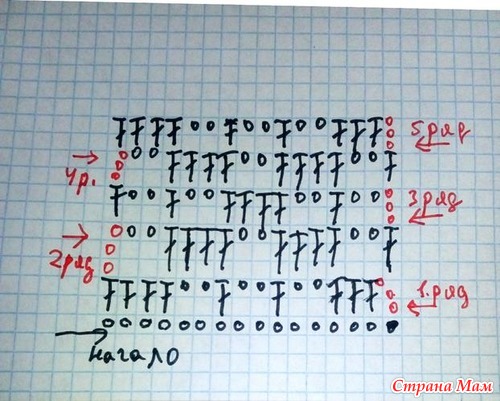 5.ряд
4р.
3ряд
2ряд
1.ряд
начало
Страна Мам